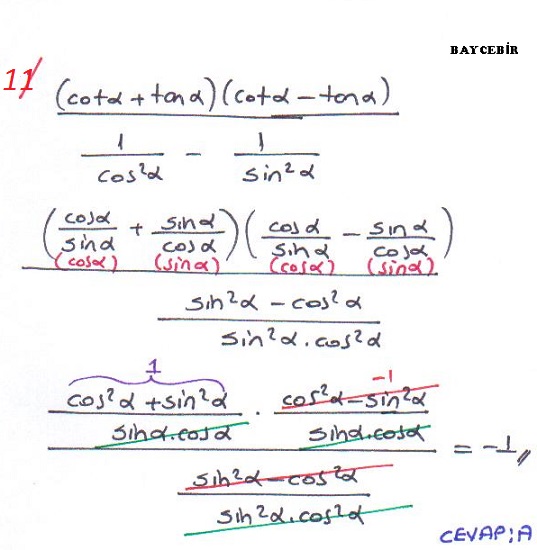 BAYCEBİR
11
(cotα + tanα)(cotα − tanα)
1/cos²α − 1/sin²α
(cosα/sinα + sinα/cosα)(cosα/sinα − sinα/cosα)
(cosα) (sinα) (cosα) (sinα)
sin²α − cos²α
sin²α . cos²α
1 −1
cos²α + sin²α . cos²α − sin²α
sinα.cosα sinα.cosα
= −1
sin²α − cos²α
sin²α . cos²α
CEVAP: A